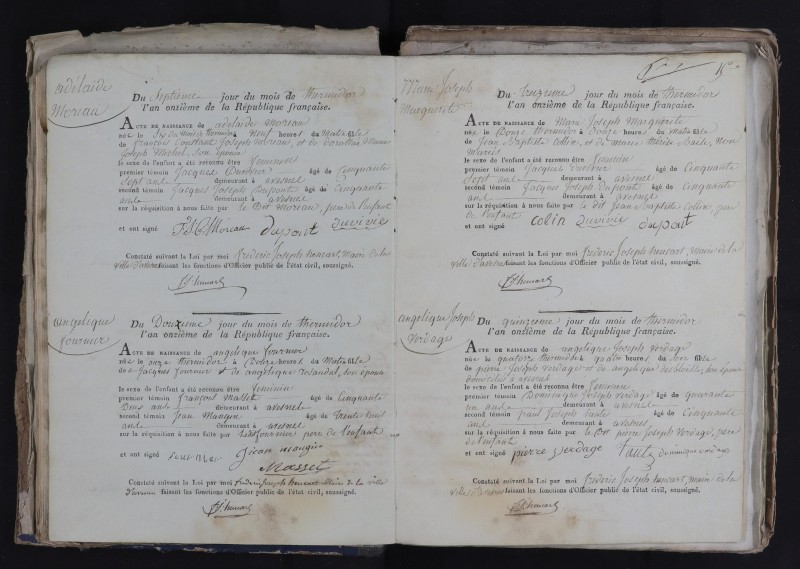 adélaïde
Moreau
Du Septième jour du mois de thermidor
l'an onzième de la République française.
ACTE DE NAISSANCE de adelaïde moreau
née le Six du mois thermidor à Neuf heures du Matin fille
de François Constant Joseph moreau, et de
Joseph Son épouse
le sexe de l'enfant a été reconnu être feminin
premier témoin Jacques âgé de Cinquante
Sept ans demeurant à avesnes
second témoin Jacques Joseph Dupont âgé de Cinquante
ans demeurant à avesnes
sur la réquisition à nous faite par le dit Moreau, pere de l'enfant
et ont signé Moreau dupont duvivié
Constaté suivant la Loi par moi frederic Joseph hennart, Maire de la
ville faisant les fonctions d'Officier public de l'état civil, soussigné.
angelique
fournier
Du Douzieme jour du mois de thermidor
l'an onzième de la République française.
ACTE DE NAISSANCE de angelique fournier
née le onze thermidor à heures du Matin fille
de Jacques fournier et de angelique Son épouse
le sexe de l'enfant a été reconnu être feminin
premier témoin françois Masset âgé de Cinquante
ans demeurant à avesnes
second témoin Jean âgé de trente huit
ans demeurant à avesnes
sur la réquisition à nous faite par fournier pere de l'enfant
et ont signé
Masset
Constaté suivant la Loi par moi frederic Joseph hennart Maire de la ville
faisant les fonctions d'Officier public de l'état civil, soussigné.
Marie Joseph
Marguerite
Du treizieme jour du mois de thermidor
l'an onzième de la République française.
ACTE DE NAISSANCE de Marie Joseph Marguerite
née le Douze thermidor à heures du Matin fille
de Jean Baptiste Collin, et de marie thérèse Non
Mariés
le sexe de l'enfant a été reconnu être feminin
premier témoin Jacques âgé de Cinquante
Sept ans demeurant à avesnes
second témoin Jacques Joseph Dupont âgé de Cinquante
ans demeurant à avesnes
sur la réquisition à nous faite par le dit Jean Baptiste Colin, pere
de l'enfant
et ont signé colin duvivié dupont
Constaté suivant la Loi par moi frederic Joseph hennart, Maire de la
ville faisant les fonctions d'Officier public de l'état civil, soussigné.
angelique Joseph
Verdage
Du quinzeme jour du mois de thermidor
l'an onzième de la République française.
ACTE DE NAISSANCE de angelique Joseph verdage
née le quatorze thermidor à quatre heures du Soir fille
de pierre Joseph verdage et de angelique Son épouse
domiciliés à avesnes
le sexe de l'enfant a été reconnu être feminin
premier témoin Dominique Joseph Verdage âgé de quarante
un ans demeurant à avesnes
second témoin paul Joseph âgé de Cinquante
ans demeurant à avesnes
sur la réquisition à nous faite par le dit pierre Joseph Verdage, pere
de l'enfant
et ont signé pierre verdage dominique verdage
Constaté suivant la Loi par moi frederic Joseph hennart, Maire de la
ville faisant les fonctions d'Officier public de l'état civil, soussigné.